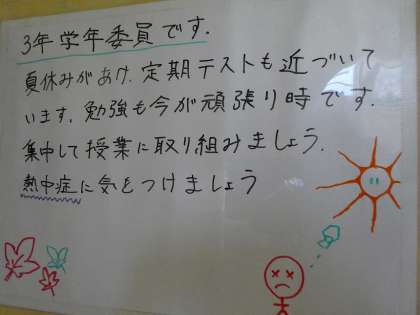 3年学年委員です.
夏休みがあけ, 定期テストも近づいて
います. 勉強も今が頑張り時です.
集中して授業に取り組みましょう.
熱中症に気をつけましょう